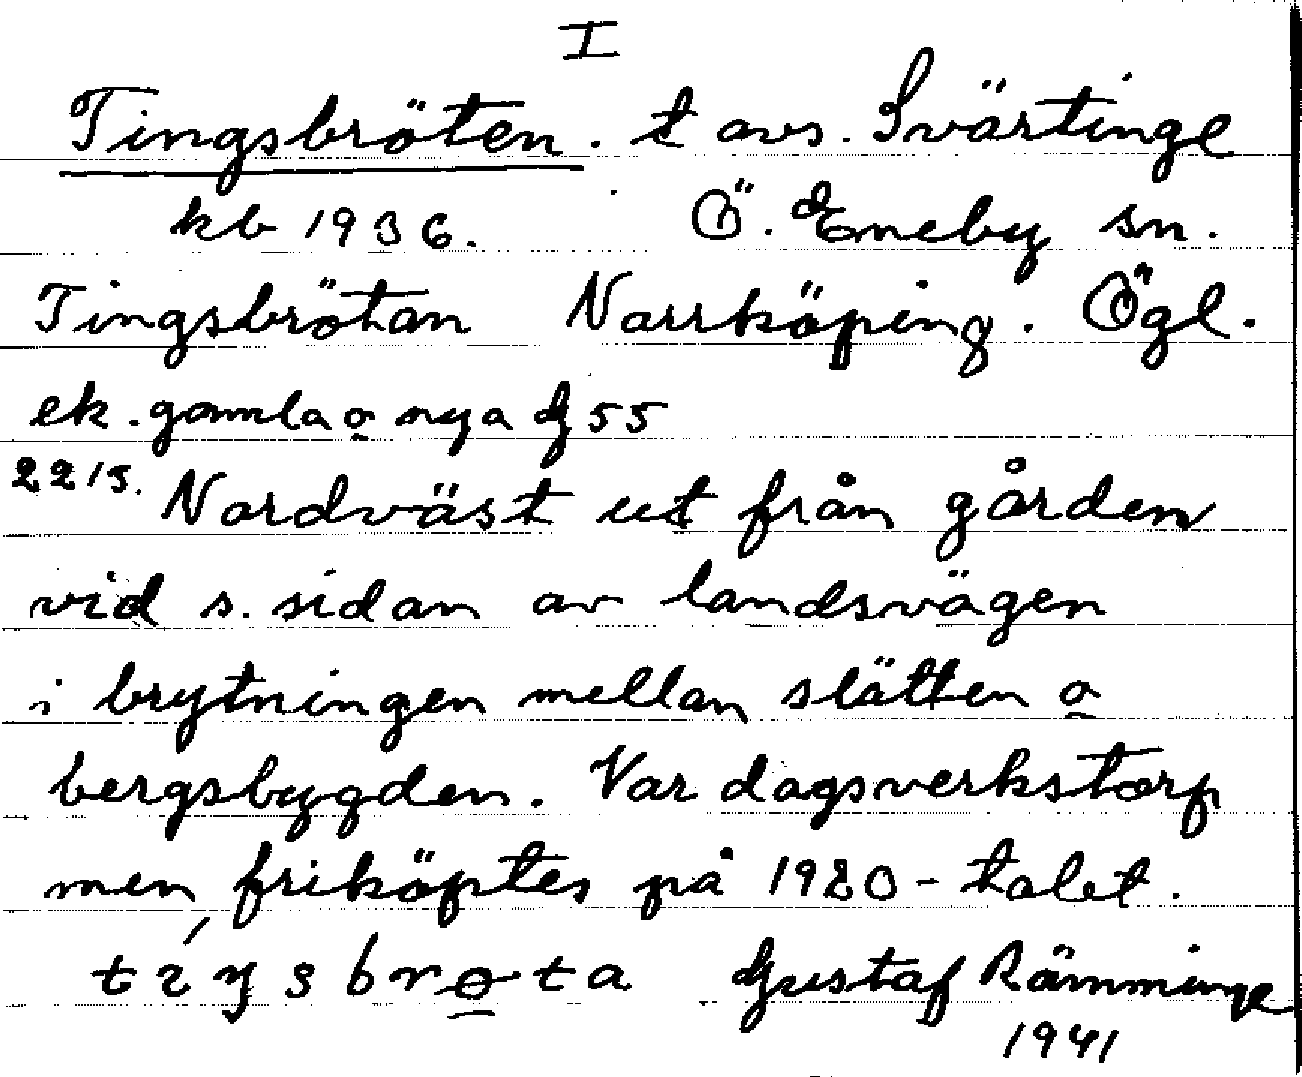 I
Tingsbröten. t avs. Svärtinge
kb 1936. Ö. Eneby sn.
Tingsbrötan Norrköping. Ögl.
ek. gamla o nya 55
2215. Nordväst ut från gården
vid s. sidan av landsvägen
i brytningen mellan slätten o
bergsbygden. Var dagsverkstorp
men friköptes på 1920-talet.
Gustaf Rämminge
1941